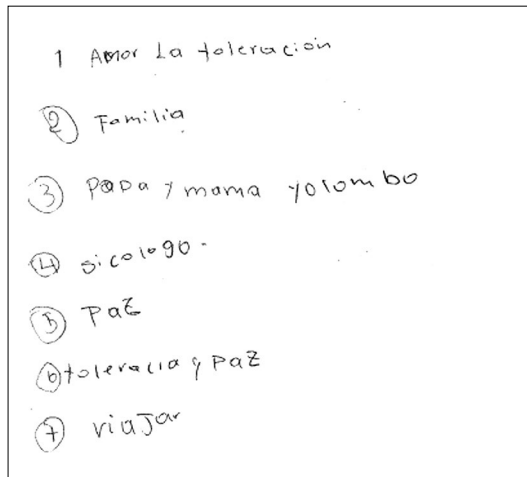 1 Amor La toleración
2 Familia
3 Papa y mama yolombo
4 sicologo.
5 Paz
6 toleracia y Paz
7 viajar